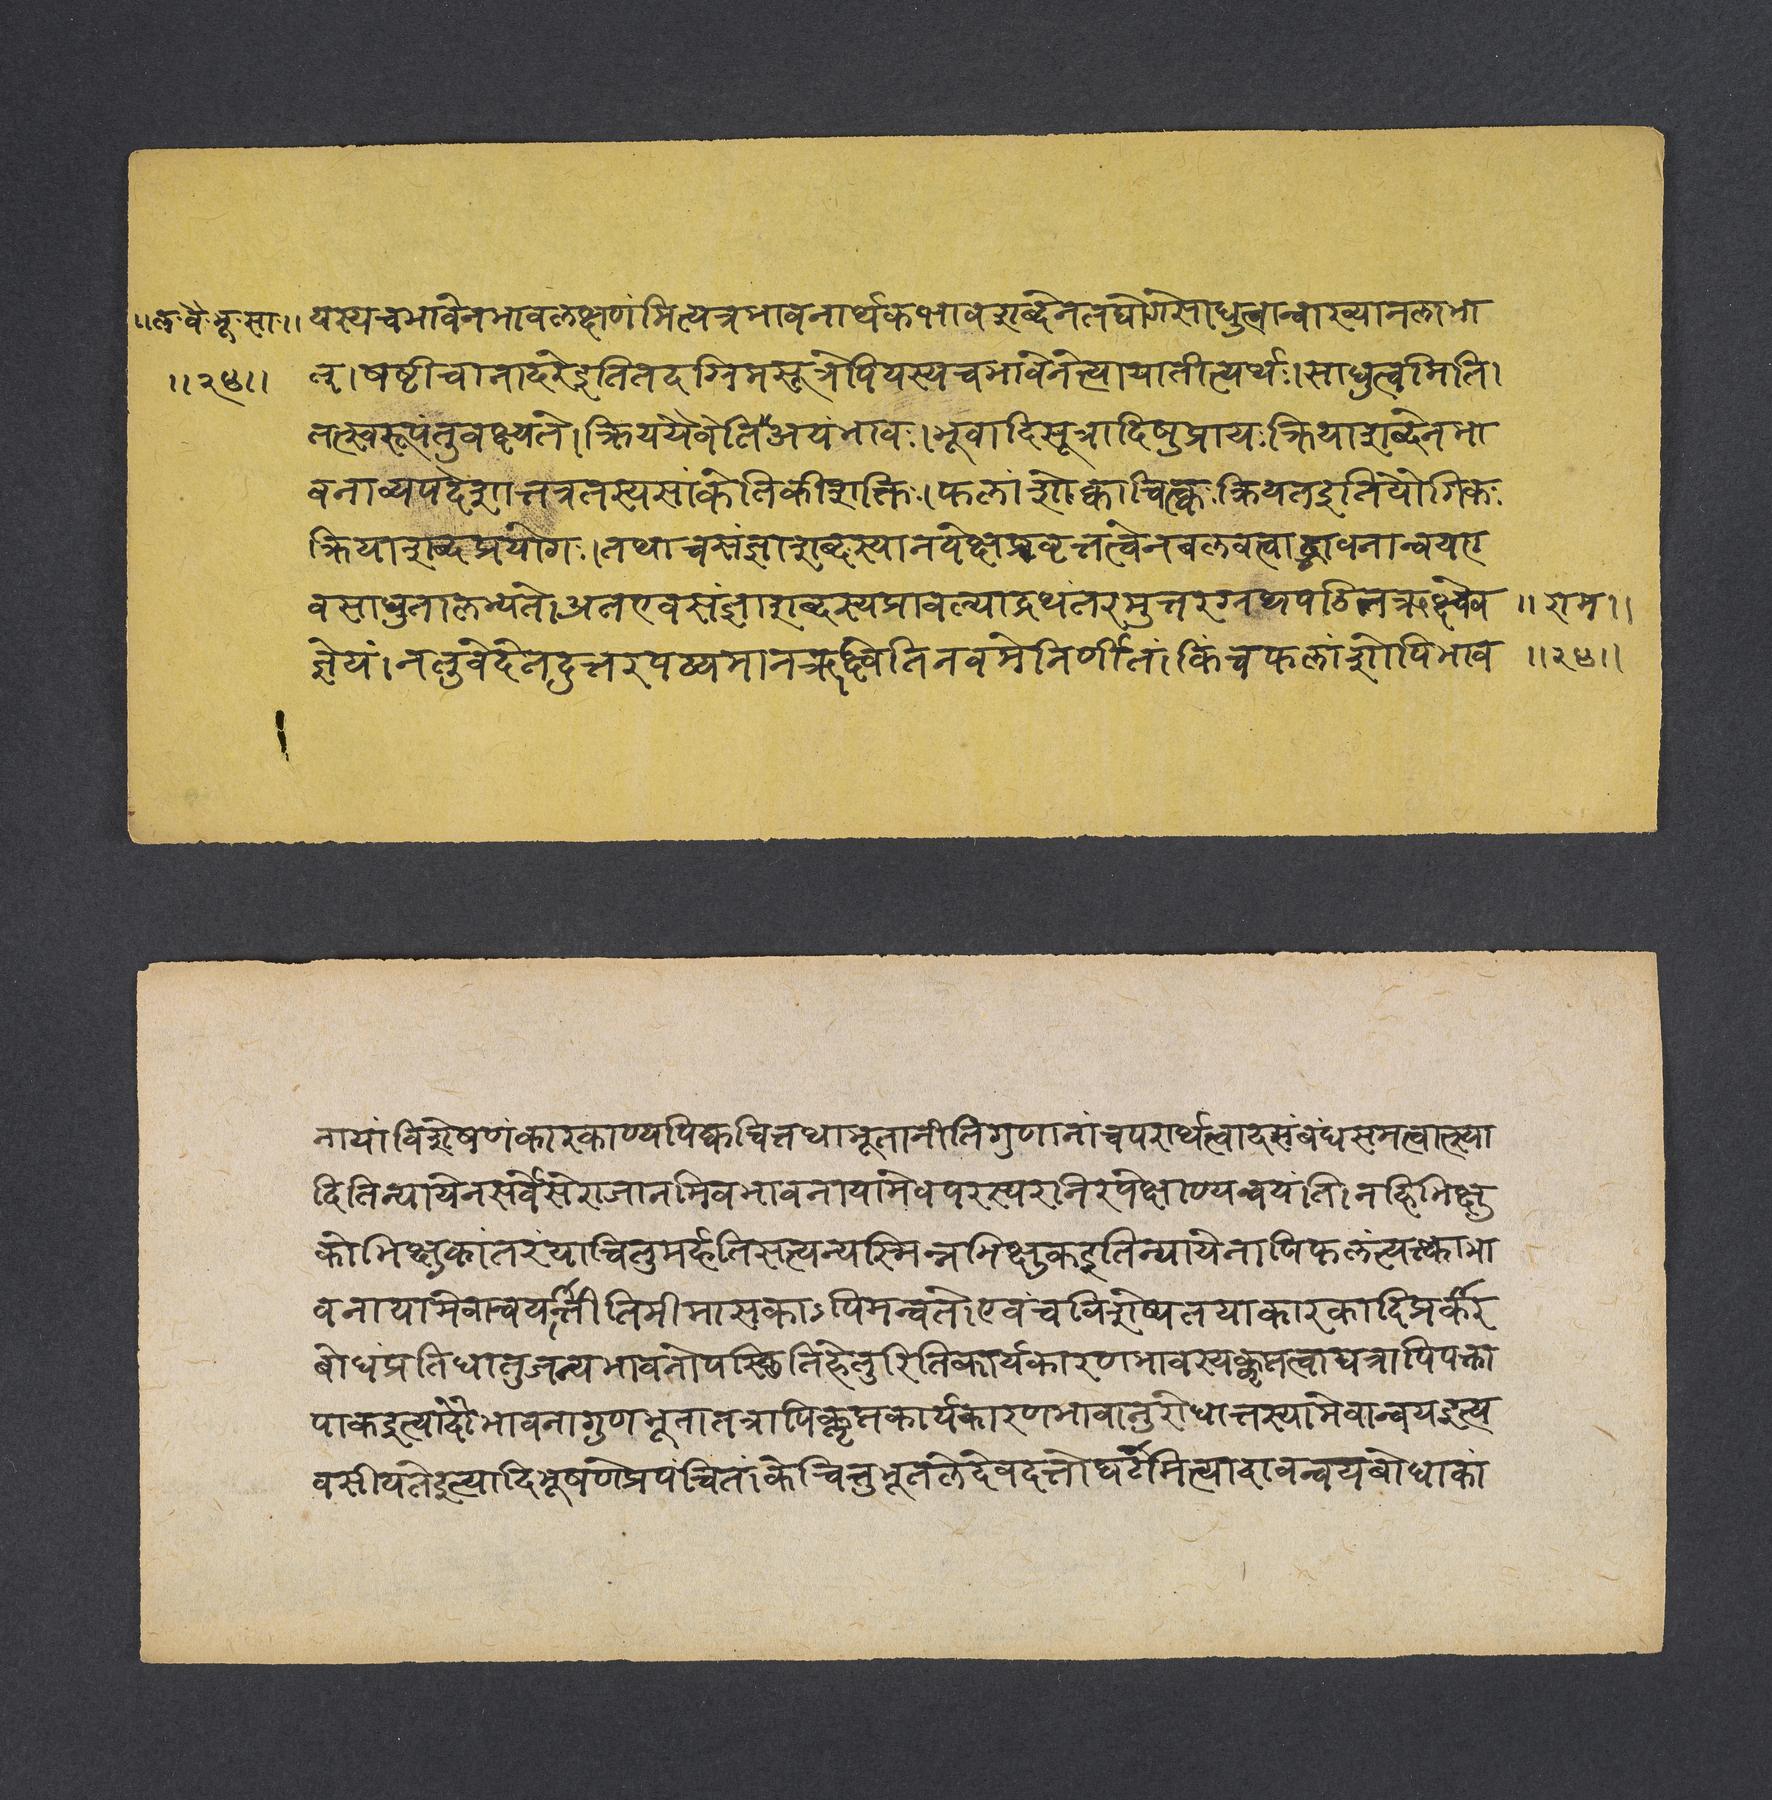 ॥ल॰वै॰भू॰सा॰॥ यस्यचभावेनभावलक्षणंमित्यत्रभावनार्थकभावशब्देनतद्योगेसाधुत्वान्वाख्यानलाभा
॥२५॥ त्। षष्टीचानादरेइतितदग्रिमसूत्रेपियस्यचभावेनेत्यायातीत्यर्थः। साधुत्वमिति।
तत्स्वरूपंतुवक्ष्यते। क्रिययैवेति॥अयंभावः। भूवादिसूत्रादिषुप्रायःक्रियाशब्देनभा
वनाव्यपदेशात्तत्रतस्यसांकेतिकीशक्तिः। फलांशेक्वाचित्कःक्रियतइतियौगिकः
क्रियाशब्दप्रयोगः। तथाचसंज्ञाशब्दस्यानपेक्षप्रवृत्तत्वेनबलवत्वाद्भावनान्वयए
वसाधुतालभ्यते। अतएवसंज्ञाशब्दस्यप्राबल्याद्रथंतरमुत्तरग्नन्थपठितऋक्ष्वेव ॥राम॥
ज्ञेयं। नतुवेदेतदुत्तरपठ्यमानऋक्ष्वितिनवमेनिर्णीतं। किंचफलांशोपिभाव ॥२५॥
नायांविशेषणंकारकाण्यपिक्वचित्तथाभूतानीतिगुणानांचपरार्थत्वादसंबंधसमत्वात्स्या
दितिन्यायेनसर्वेसेराजानमिवभावनायामेवपरस्परनिरपेक्षाण्यन्वयंति। नहिभिक्षु
कोभिक्षुकांतरंयाचितुमर्हतिसत्यन्यस्मिन्नभिक्षुकइतिन्यायेनापिफलंत्यक्त्काभा
वनायामेवान्वयन्तीतिमीमासकाऽपिमन्वते। एवंचविशेष्यतयाकारकादिप्रकार
बोधंप्रतिधातुजन्यभावनोपस्छितिहेतुरितिकार्यकारणभावस्यक्लृप्तत्वाद्यत्रापिपक्ता
पाकइत्यादौभावनागुणभूतातत्रापिक्लृप्तकार्यकारणभावानुरोधात्तस्यामेवान्वयइत्य
वसीयतेइत्यादिभूषणेप्रपंचितं। केचित्तुभूतलेदेवदत्तोघटमित्यादावन्वयबोधाकां